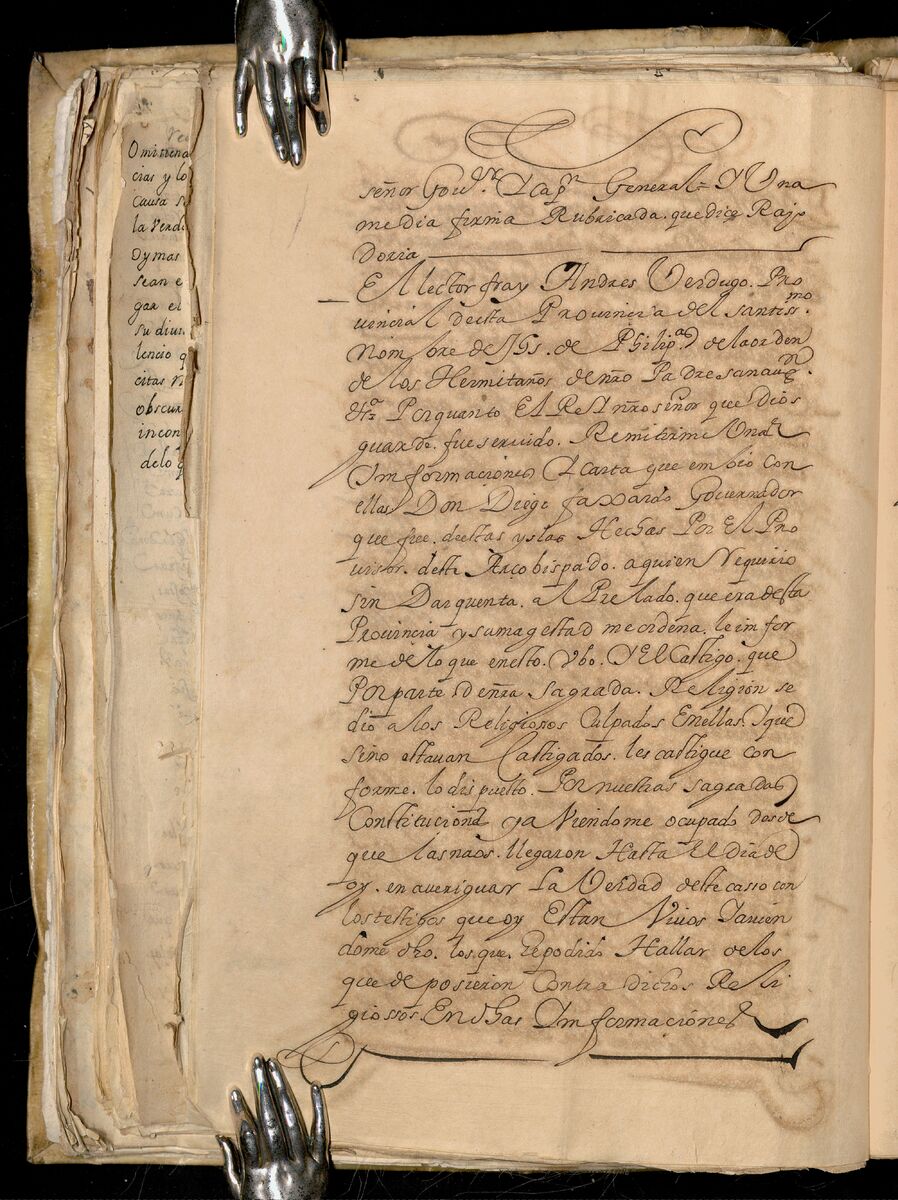 Omitiena
cias y lo
Causa se
la Verda
Oymas
sean e
gar el
su diun
lencio q
citas N
obscur
incon
delo q
señor Gouor. Y capn General = Y Vna
media firma Rubricada. que dice Rajo
Doria
El lector fray Andres Verdugo. Pro
uincial desta Prouincia del santissmo.
Nombre de JHs. de Philipas de la orden
de los Hermitaños de nro Padre san augn
&ra Porquanto El Rei nro señor que Dios
guarde. fue seruido. Remitirme Unas
Informaciones Y carta que embio con
ellas Don Diego faxardo Gouernador
que fue. destas yslas Hechas Por El Pro
uisor. deste Arcobispado. aquien Requirio
sin Dar quenta. al Prelado. que era desta
Prouincia y su magestad me ordena. le infor
me de lo que enesto. Vbo. Y El Castigo. que
Por parte de nra sagrada. Religion se
dio a los Religiosos Culpados En ellas. Y que
sino estauan Castigados. les castigue con
forme. lo dispuesto. Por nuestras sagradas
Constituciones ya Viendome ocupado desde
que las naos. llegaron Hasta El Dia de
oy. en aueriguar La Verdad deste casso con
los testigos que oy Estan Viuos Yauien
dome dho. los que. se podido Hallar de los
que de posieron Contra dichos Reli
giossos En dhas Informaciones